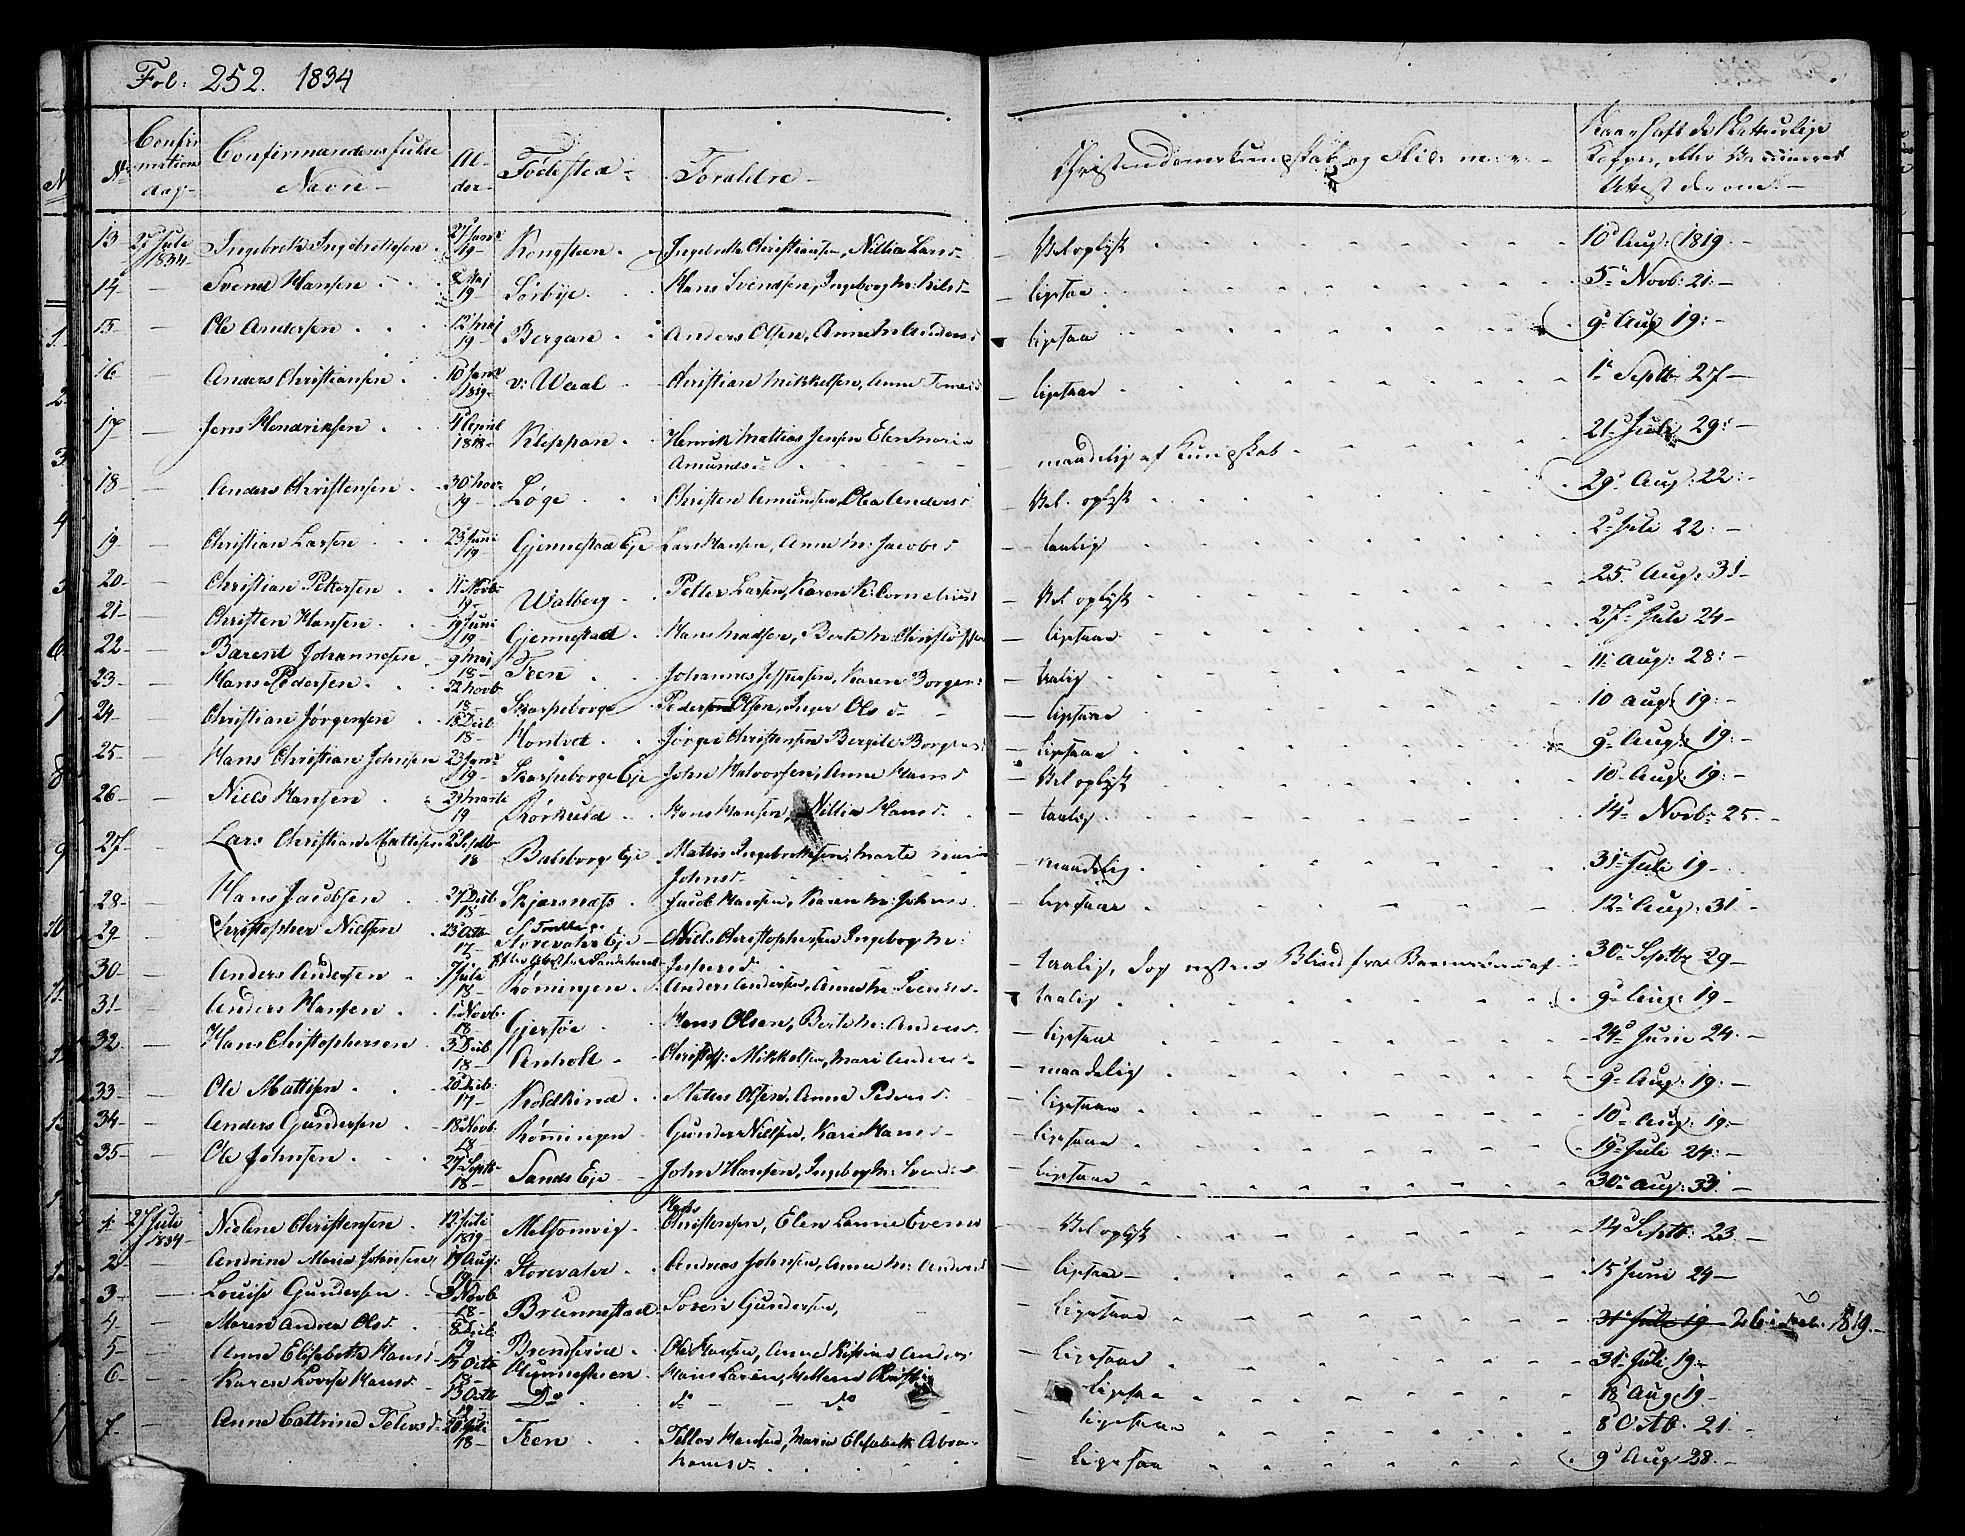 Fol: 252. 1834
No Confir mations dag Confirmandens fulde Navn Al- der Fødested Forældre Christendomskundskab og Naar haft de Naturlige Kopper, eller Vaccineret Attest derom
13 27 Juli 1834 Ingebrekt Ingebrektsen 27 Janr 19 Kongsteen Ingebrekt Christiansen, Nillia Larsd Vel oplyst 10 Aug: 1819
14 Svend Hansen 8 Maj 19 Sørbye Hans Svendsen, Ingeborg M: Nilsd ligesaa 5 Novb: 21
15 Ole Andersen 12 Maj 19 Bergan Anders Olsen, Anne M: Andersd ligesaa 9 Aug 19
16 Anders Christiansen 10 Janr 1819 v: Waal Christian Mikkelsen, Anne ligesaa 1 Septb: 27
17 Jens Hendriksen 4 April 1818 Kleppan Henrik Mathias Jensen Elen Maria Amundsd maadelig af Kundskab 21 Juli 29
18 Anders Christensen 30 Nov 19 Løge Christen Amundsen, Olea Andersd Vel oplyst 29 Aug: 22
19 Christian Larsen 23 Juni 19 Gjennestad Eje Lars Hansen, Anne M: Jacobsd taalig 2 Juli 22
20 Christian Pettersen 11 Novb 19 Walberg Petter Larsen, Karen K: Corneliusd Vel oplyst 25 Aug: 31
21 Christen Hansen 19 Juni 19 Gjennestad Hans Madsen, Berte M: Christoffer ligesaa 27 Juli 24
22 Bærent Johannesen 9 Maj 18 Teen Johannes Jespersen, Karen Borgers taalig 11 Aug: 28
23 Hans Pedersen 22 Novb 18 Skarsseborge Peder Olsen, Inger Olsd ligesaa 10 Aug: 19
24 Christian Jørgensen 13 Decb 18 Hontvet Jørgen Christensen Bergite Borgersd ligesaa 9 Aug: 19
25 Hans Christian Johnsen 23 Janr 19 Skarsseborge Eje John Halvorsen, Anne Hansd Vel oplyst 10 Aug: 19
26 Niels Hansen 29 Marts 19 Rørkuld Hans Hansen, Nillia Hansd taalig 14 Novb: 25
27 Lars Christian Mattisen 2 Septb 18 Basborg Eje Mattis Ingebrektsen, Marte Maria Johnsd maadelig 31 Juli 19
28 Hans Jacobsen 27 Decb 18 Skjærsnæss Jacob Hansen, Karen M: Johnsd ligesaa 12 Aug: 31
29 Christopher Nielsen 23 Octb 17 Storevaler Eje Niels Christophersen Ingeborg M: Jespersd taalig, dog næsten Blind fra Barndommen af 30 Septbr 29
30 Anders Andersen 7 Juli 18 Rømingen Anders Andersen, Anne M: Svensd taalig 9 Aug: 19
31 Anders Hansen 1 Novb 18 Gjersøe Hans Olsen, Berte M: Andersd ligesaa 24 Juni 24
32 Hans Christophersen 3 Decb 18 Anholt Christoff: Mikkelsen, Mari Anders maadelig 9 Aug: 19
33 Ole Mattisen 20 Decb 17 Koldkind Mattis Olsen, Anne Pedersd ligesaa 10 Aug: 19
34 Anders Gundersen 18 Novb 18 Rømingen Gunder Nielsen, Kari Hansd ligesaa 19 Juli 24
35 Ole Johnsen 27 Septb 18 Sands Eje John Hansen, Ingeborg M: Svends ligesaa 30 Aug: 33
1 27 Juli 1834 Nielene Christensen 12 Juli 1819 Melsomvig Christensen, Elen Evens Vel oplyst 14 Septb: 23
2 Andrine Maria Johnsen 19 Aug: 19 Storevaler Andreas Johnsen, Anne M: Andersd ligesaa 15 Juni 24
3 Louise Gundersen 3 Novb 18 Brunnestad Søren Gundersen, ligesaa 31 Juli 19 26 1819
4 Maren Andrea Olsd 8 Decb 19 Brendsrød Ole Hansen, Anne Kistine Anders ligesaa 31 Juli 19
5 Anne Elisabeth Hansd 15 Octb 18 Hunnesteen Hans Larsen, ligesaa 18 Aug 19
6 Karen Lovise Hansd 13 Octb 19 Do do do ligesaa 8 Octb: 21
7 Anne Cattrine Tellevsd 20 Juli 18 Teen Tellev Hansen, Maria Elisabeth Abrahamsd ligesaa 9 Aug 28